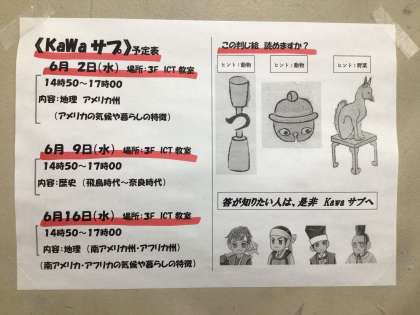 《KaWa サブ》予定表
6月 2日(水) 場所:3F ICT 教室
14時50~17時00
内容:地理 アメリカ州
(アメリカの気候や暮らしの特徴)
6月 9日(水) 場所:3F ICT 教室
14時50~17時00
内容:歴史 (飛鳥時代~奈良時代)
6月16日(水) 場所:3F ICT 教室
14時50~17時00
内容:地理 (南アメリカ州・アフリカ州)
(南アメリカ・アフリカの気候や暮らしの特徴)
この判じ絵 読めますか?
ヒント:動物
ヒント:動物
ヒント:野菜
つ
答が知りたい人は、是非 Kawa サブへ